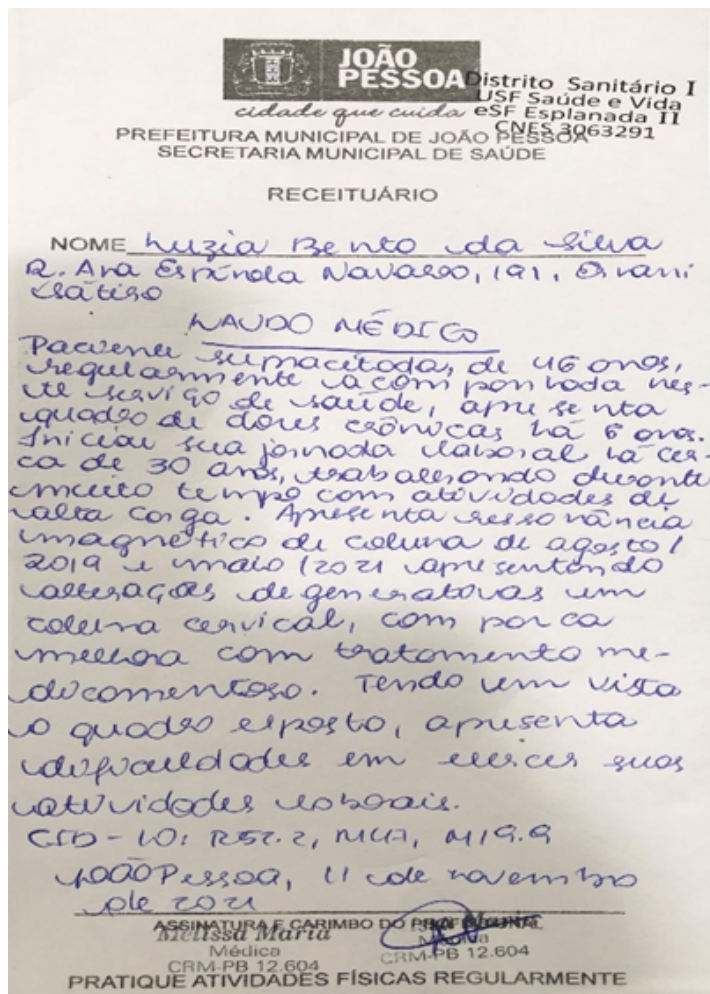 JOÃO
PESSOA
cidade que cuida
Distrito Sanitário I
USF Saúde e Vida
eSF Esplanada II
CNES 3063291
PREFEITURA MUNICIPAL DE JOÃO PESSOA
SECRETARIA MUNICIPAL DE SAÚDE
RECEITUÁRIO
NOME Luzia Bento da Silva
R. Ana Espínola Navarro, 191, Ernani
Sátiro
LAUDO MÉDICO
Paciente supracitada, de 46 anos,
regularmente acompanhada nes-
te serviço de saúde, apresenta
quadro de dores crônicas há 6 anos.
Iniciou sua jornada laboral há cer-
ca de 30 anos, trabalhando durante
muito tempo com atividades de
alta carga. Apresenta ressonância
magnética de coluna de agosto/
2019 e maio/2021 apresentando
alterações degenerativas em
coluna cervical, com pouca
melhora com tratamento me-
dicamentoso. Tendo em vista
o quadro exposto, apresenta
dificuldades em exercer suas
atividades laborais.
CID-10: R52.2, M47, M19.9
João Pessoa, 11 de novembro
de 2021
ASSINATURA E CARIMBO DO PROFISSIONAL
Melissa Maria
Médica
CRM-PB 12.604
Maria
Médica
CRM-PB 12.604
PRATIQUE ATIVIDADES FÍSICAS REGULARMENTE